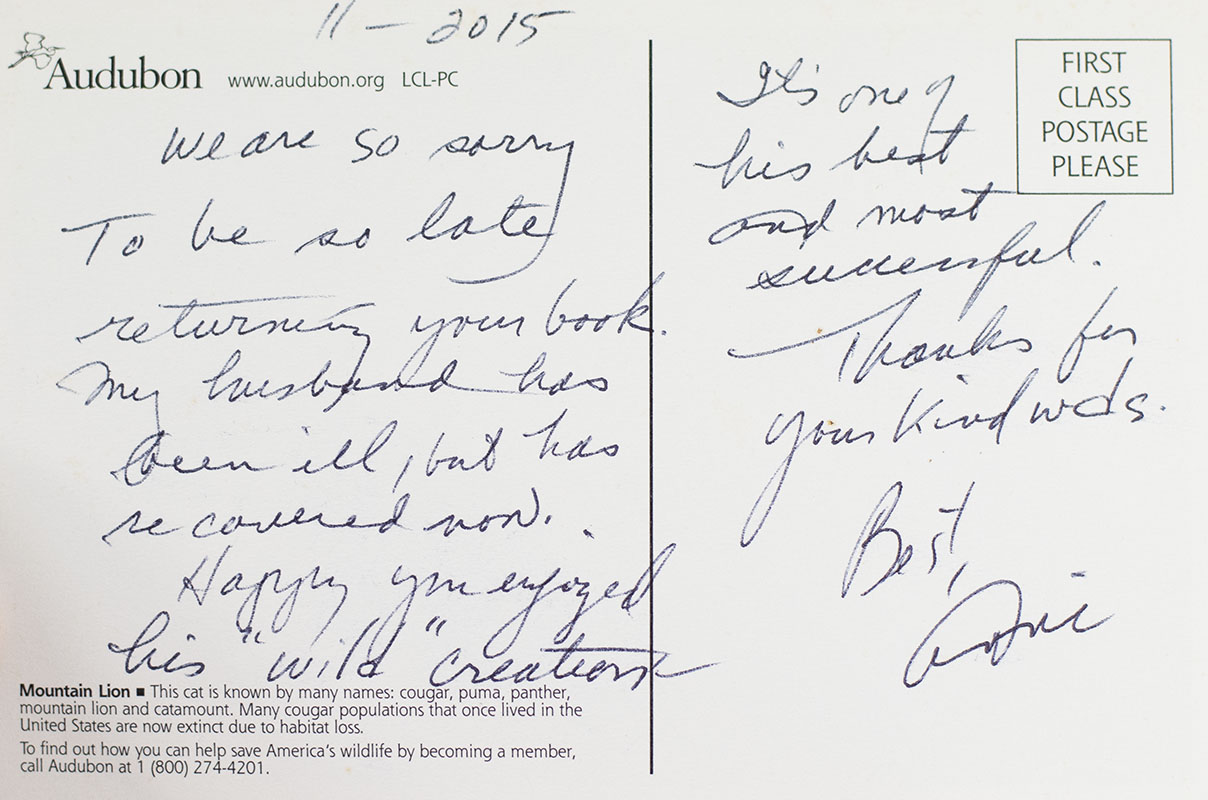 11 - 2015
Audubon www.audubon.org LCL-PC
We are so sorry
To be so late
returning your book.
My husband has
been ill, but has
recovered now.
Happy you enjoyed
his "wild" creation
Mountain Lion ■ This cat is known by many names: cougar, puma, panther,
mountain lion and catamount. Many cougar populations that once lived in the
United States are now extinct due to habitat loss.
To find out how you can help save America's wildlife by becoming a member,
call Audubon at 1 (800) 274-4201.
FIRST
CLASS
POSTAGE
PLEASE
It's one of
his best
and most
successful.
Thanks for
your kind wds.
Best,